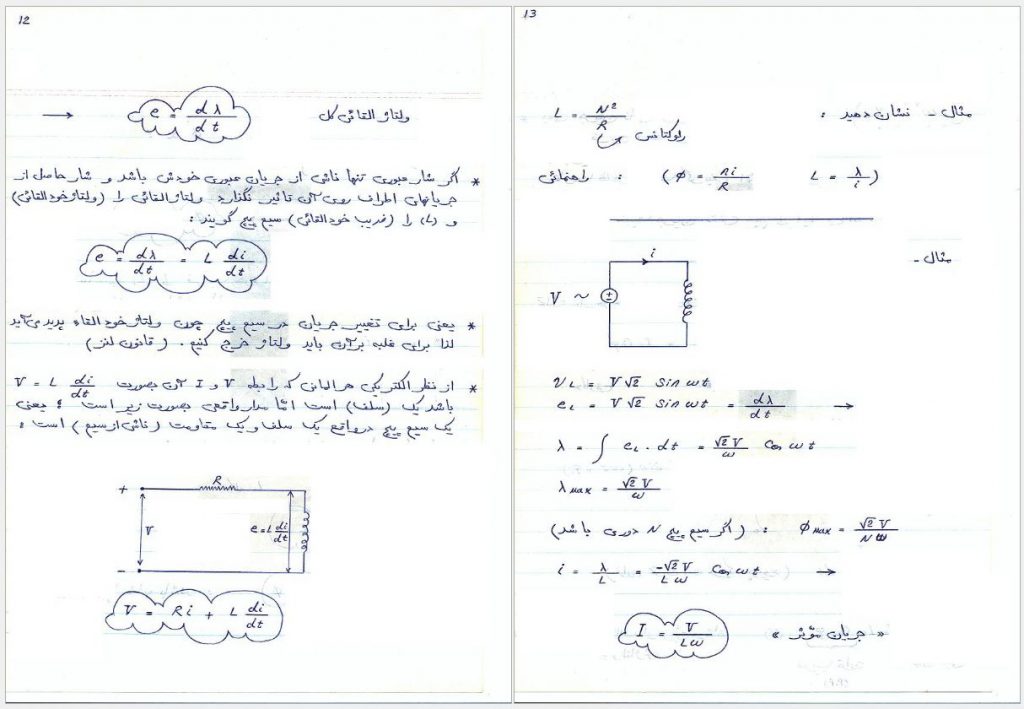 12
→ e = dλ/dt ولتاژ القائی کل
* اگر شار عبوری تنها ناشی از جریان عبوری خودش باشد و شار حاصل از
جریانهای اطراف روی آن تاثیر نگذارد ولتاژ القائی را (ولتاژ خود القائی)
و (L) را (ضریب خود القائی) سیم پیچ گویند :
e = dλ/dt = L di/dt
* یعنی برای تغییر جریان در سیم پیچ چون ولتاژ خود القاء پدید می آید
لذا برای غلبه بر آن باید ولتاژ خرج کنیم . (قانون لنز)
* از نظر الکتریکی هر المانی که رابطه V و I آن بصورت V = L di/dt
باشد یک (سلف) است امّا مدار واقعی بصورت زیر است ؛ یعنی
یک سیم پیچ در واقع یک سلف و یک مقاومت (ناشی از سیم) است :
R
+
V
e = L di/dt
−
V = Ri + L di/dt
13
مثال - نشان دهید : L = N²/R
رلوکتانس
راهنمائی : (φ = ni/R L = λ/i)
مثال -
i
V ~ ±
vL = V√2 Sin ωt
eL = V√2 Sin ωt = dλ/dt →
λ = ∫ eL . dt = √2 V/ω Cos ωt
λmax = √2 V/ω
(اگر سیم پیچ N دوری باشد) : φmax = √2 V/Nω
i = λ/L = -√2 V/Lω Cos ωt →
I = V/Lω « جریان مؤثر »